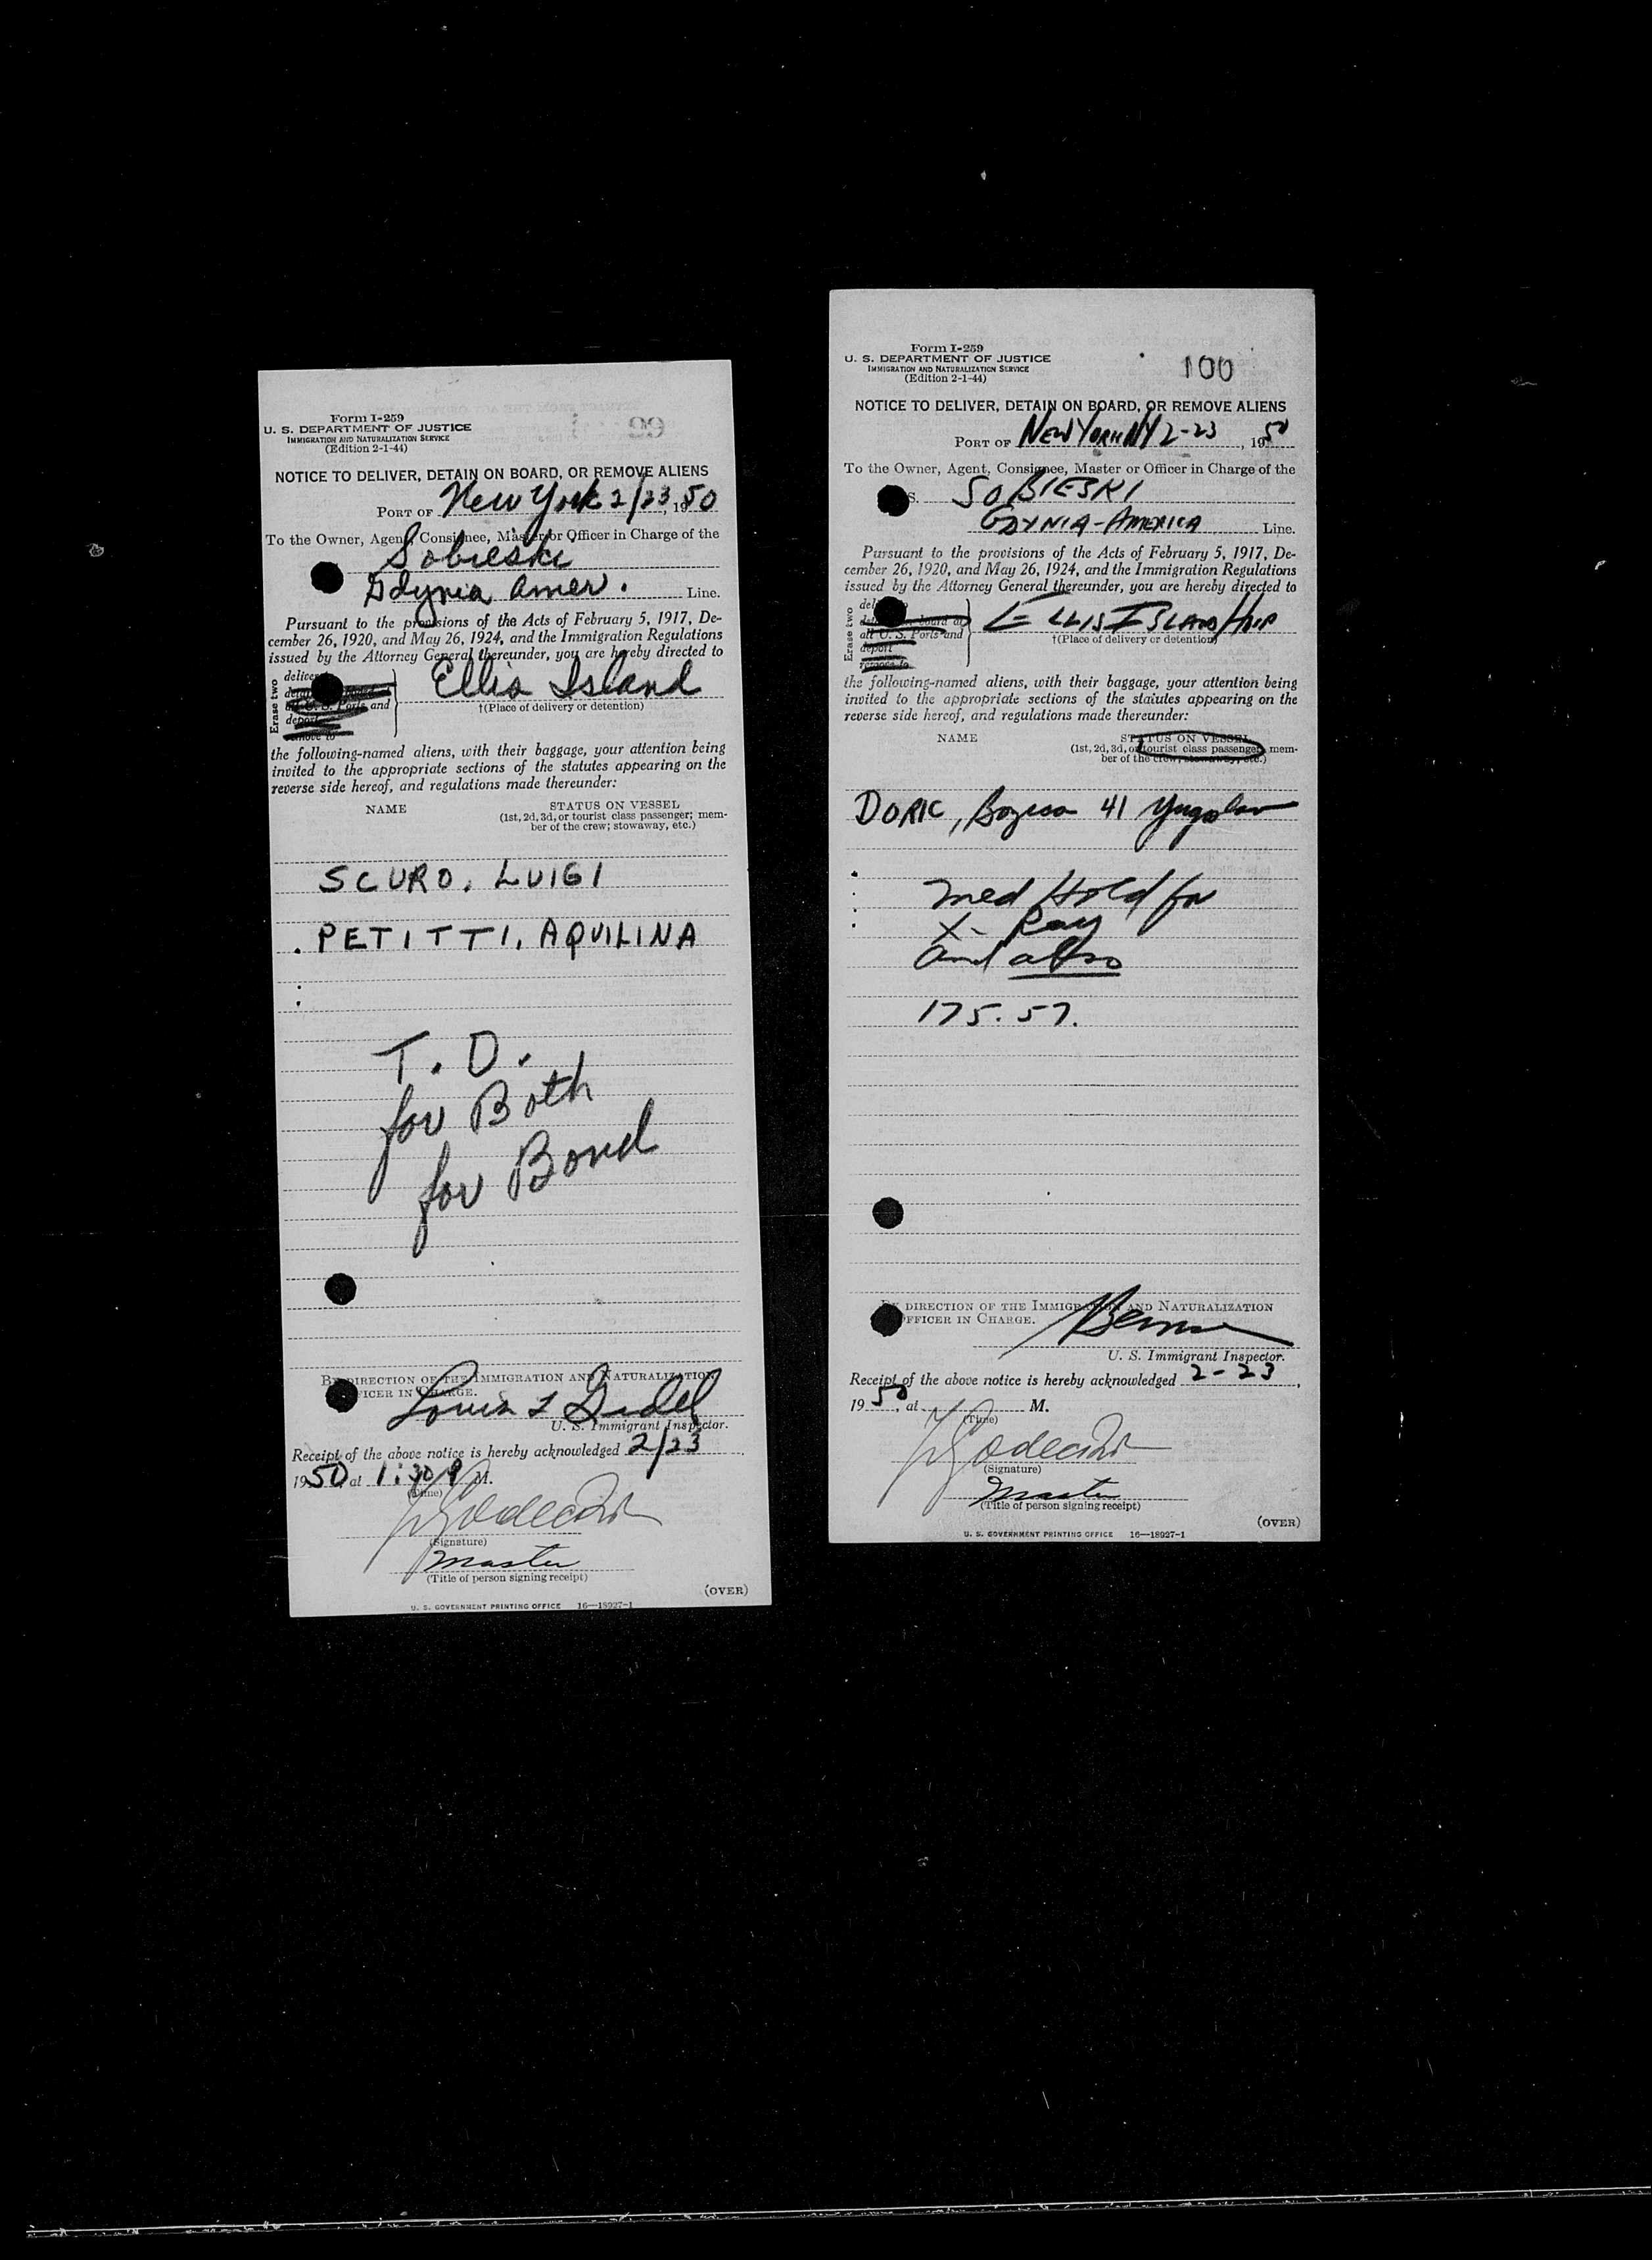 Form I-259
U. S. DEPARTMENT OF JUSTICE
IMMIGRATION AND NATURALIZATION SERVICE
(Edition 2-1-44)
NOTICE TO DELIVER, DETAIN ON BOARD, OR REMOVE ALIENS
PORT OF New York 2/23, 1950
To the Owner, Agent, Consignee, Master or Officer in Charge of the
Sobieski
Gdynia Amer. Line.
Pursuant to the provisions of the Acts of February 5, 1917, De-
cember 26, 1920, and May 26, 1924, and the Immigration Regulations
issued by the Attorney General thereunder, you are hereby directed to
Erase two
deliver
Ports and
deport
remove to
Ellis Island
†(Place of delivery or detention)
the following-named aliens, with their baggage, your attention being
invited to the appropriate sections of the statutes appearing on the
reverse side hereof, and regulations made thereunder:
NAME STATUS ON VESSEL
(1st, 2d, 3d, or tourist class passenger; mem-
ber of the crew; stowaway, etc.)
SCURO, LUIGI
PETITTI, AQUILINA
T. D.
for Both
for Bond
BY DIRECTION OF THE IMMIGRATION AND NATURALIZATION
OFFICER IN CHARGE.
Louis
U. S. Immigrant Inspector.
Receipt of the above notice is hereby acknowledged 2/23
1950, at 1:30 P M.
(Time)
(Signature)
Master
(Title of person signing receipt)
(OVER)
U. S. GOVERNMENT PRINTING OFFICE 16—18927-1
Form I-259
U. S. DEPARTMENT OF JUSTICE
IMMIGRATION AND NATURALIZATION SERVICE
(Edition 2-1-44)
100
NOTICE TO DELIVER, DETAIN ON BOARD, OR REMOVE ALIENS
PORT OF NEW YORK NY 2-23, 1950
To the Owner, Agent, Consignee, Master or Officer in Charge of the
S. SOBIESKI
GDYNIA-AMERICA Line.
Pursuant to the provisions of the Acts of February 5, 1917, De-
cember 26, 1920, and May 26, 1924, and the Immigration Regulations
issued by the Attorney General thereunder, you are hereby directed to
Erase two
board at
all U. S. Ports and
deport
remove to
ELLIS ISLAND
†(Place of delivery or detention)
the following-named aliens, with their baggage, your attention being
invited to the appropriate sections of the statutes appearing on the
reverse side hereof, and regulations made thereunder:
NAME STATUS ON VESSEL
(1st, 2d, 3d, or tourist class passenger; mem-
ber of the crew; stowaway, etc.)
DORIC, 41 Yugoslav
med Hold for
X-Ray
and also
175.57.
BY DIRECTION OF THE IMMIGRATION AND NATURALIZATION
OFFICER IN CHARGE.
U. S. Immigrant Inspector.
Receipt of the above notice is hereby acknowledged 2-23,
1950, at M.
(Time)
(Signature)
Master
(Title of person signing receipt)
(OVER)
U. S. GOVERNMENT PRINTING OFFICE 16—18927-1